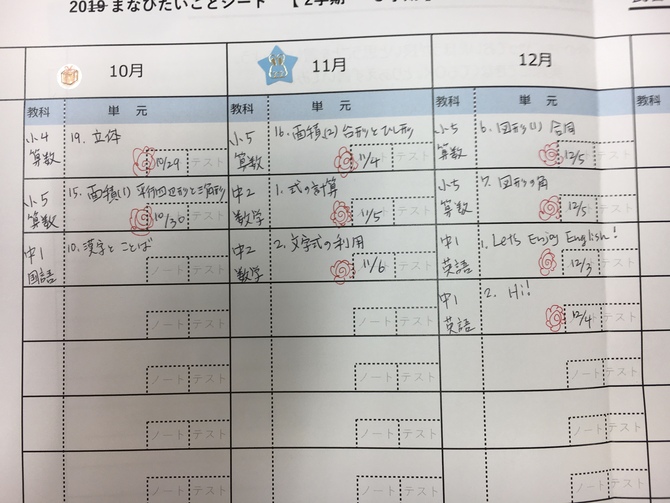 2019 まなびたいことシート 【2学期
10月 11月 12月
教科 単元 教科 単元 教科 単元
小4 算数 19. 立体 10/29 テスト
小5 算数 16. 面積(2) 台形とひし形 11/4 テスト
小5 算数 6. 図形(1) 合同 12/5 テスト
小5 算数 15. 面積(1) 平行四辺形と三角形 10/30 テスト
中2 数学 1. 式の計算 11/5 テスト
小5 算数 7. 図形の角 12/5 テスト
中1 国語 10. 漢字とことば ノート テスト
中2 数学 2. 文字式の利用 11/6 テスト
中1 英語 1. Let's Enjoy English! 12/3 テスト
ノート テスト ノート テスト
中1 英語 2. Hi! 12/4 テスト
ノート テスト ノート テスト ノート テスト
ノート テスト ノート テスト ノート テスト
ノート テスト ノート テスト ノート テスト